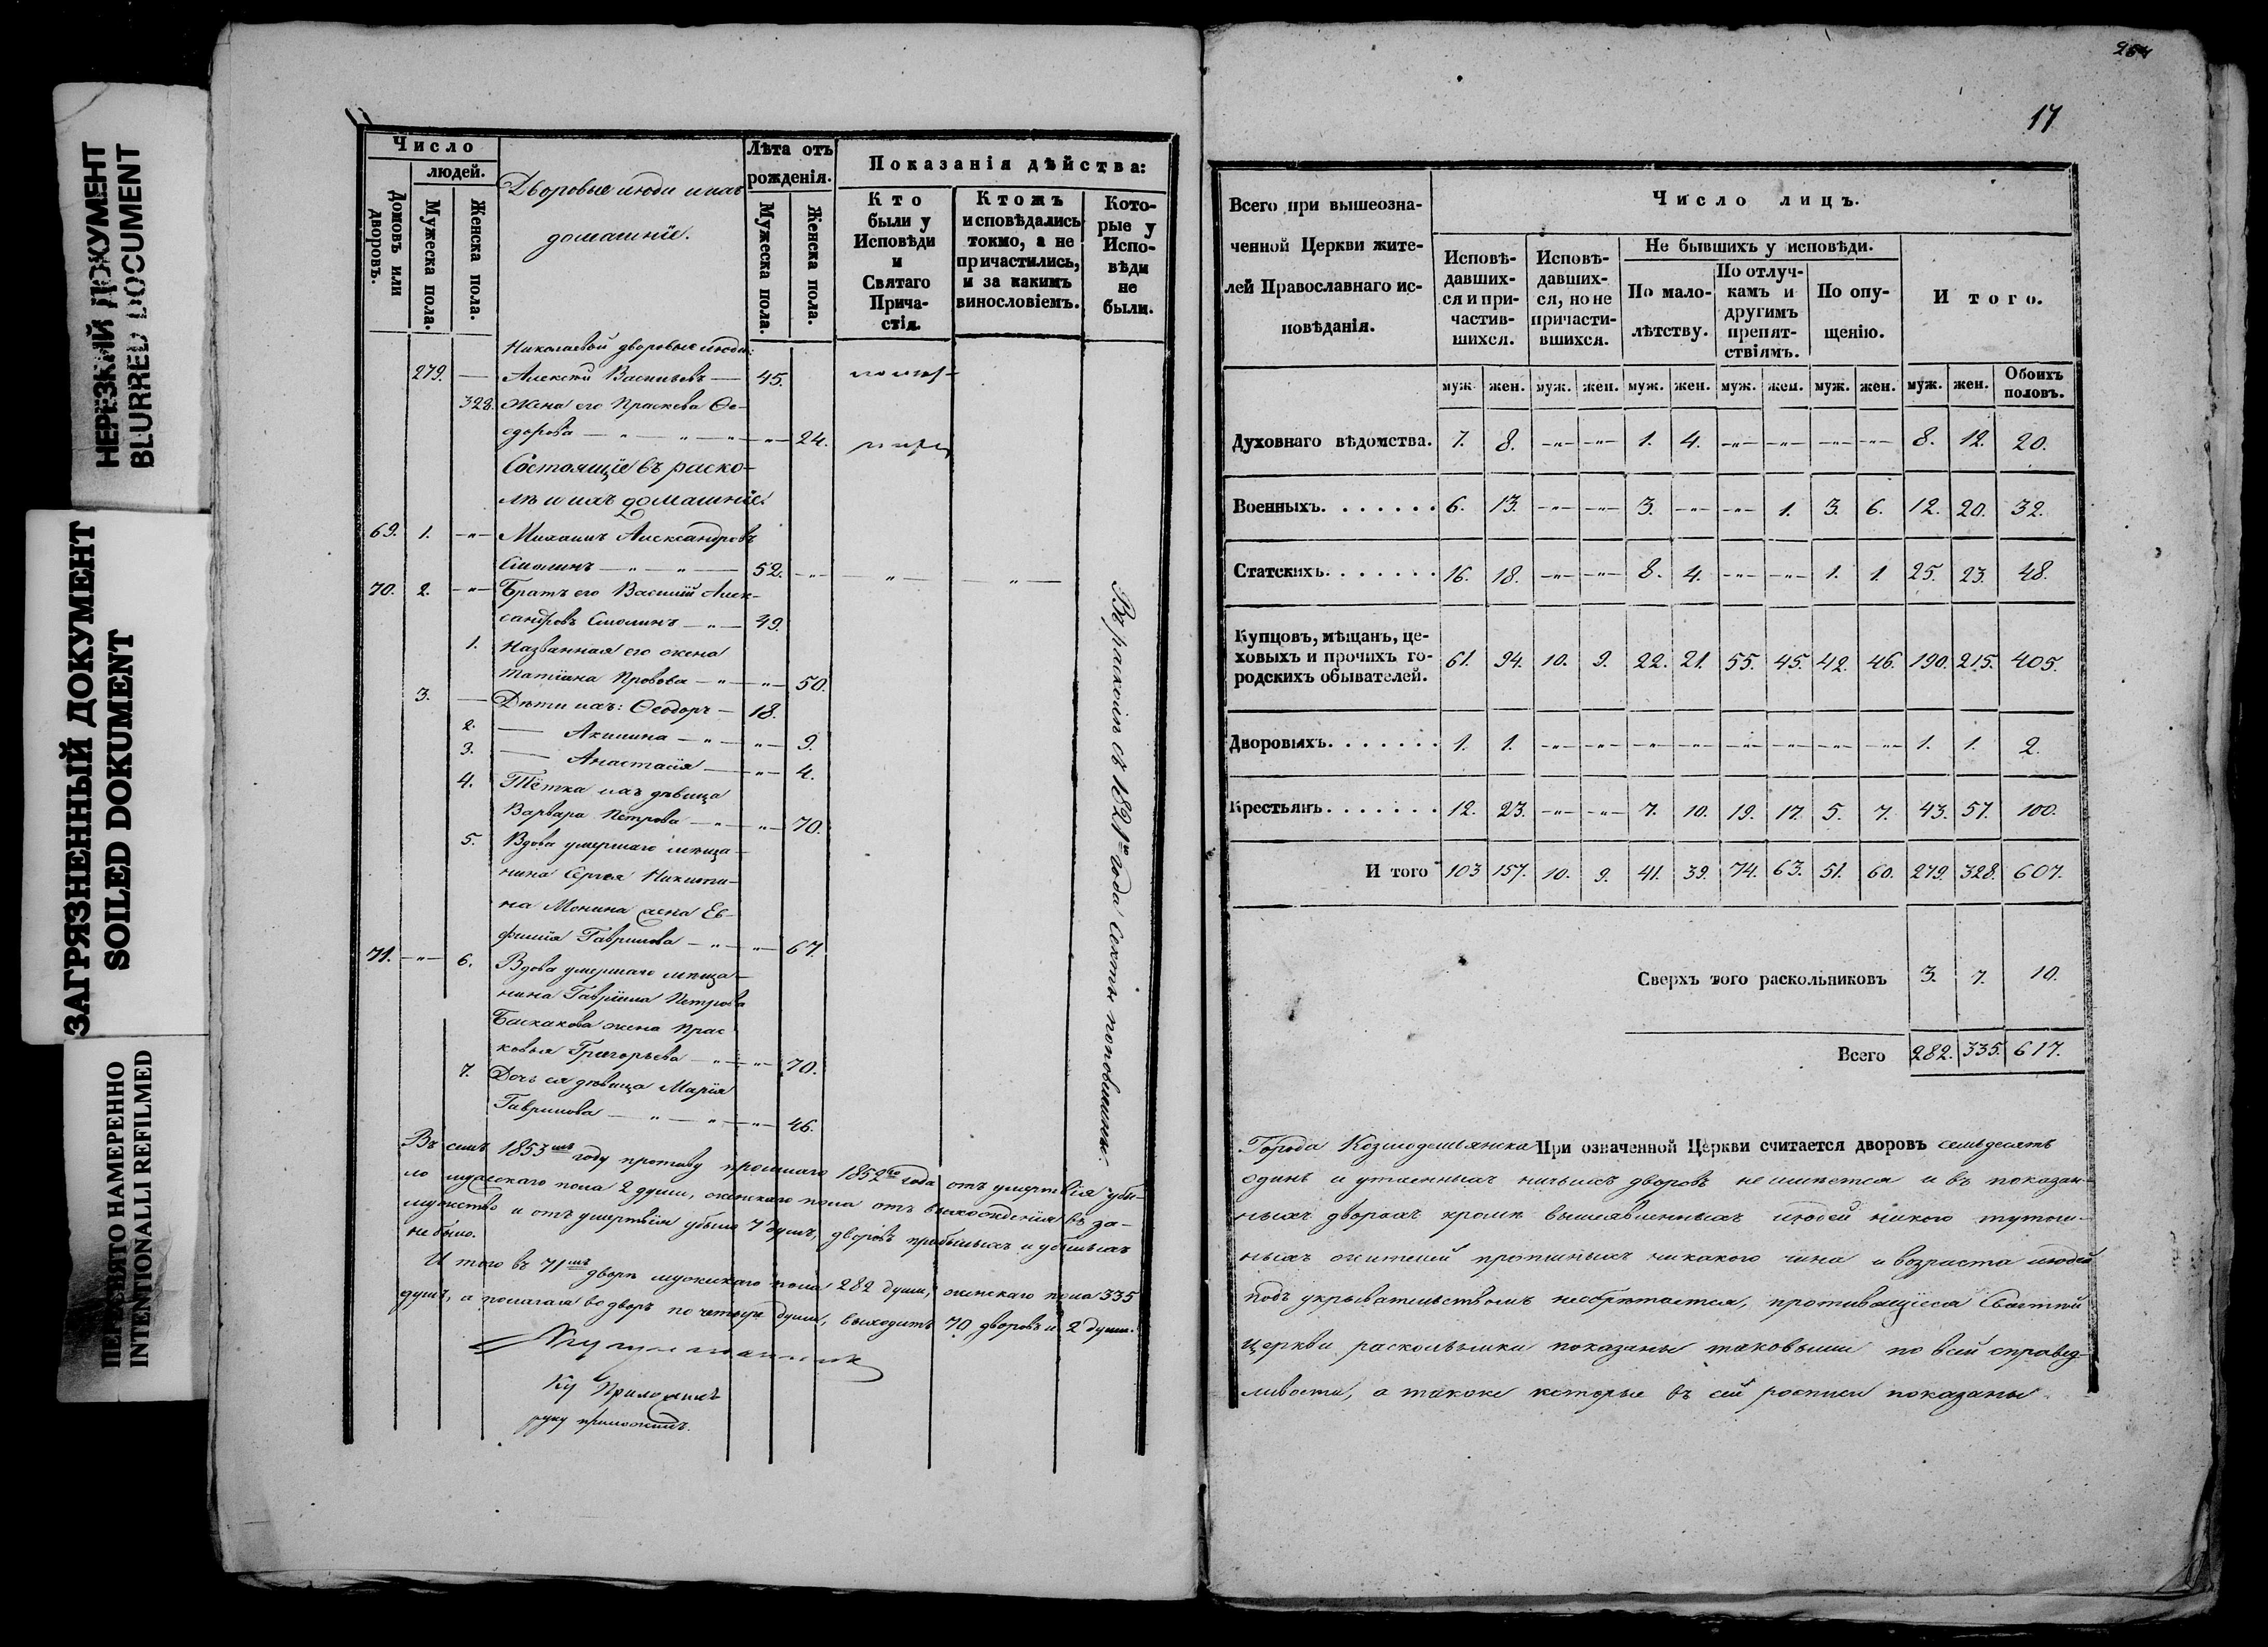 НЕРЕЗКИЙ ДОКУМЕНТ
BLURRED DOCUMENT
ЗАГРЯЗНЕННЫЙ ДОКУМЕНТ
SOILED DOKUMENT
ПЕРЕСНЯТО НАМЕРЕННО
INTENTIONALLI REFILMED
Число
людей.
Домовъ или дворовъ.
Мужеска пола.
Женска пола.
Дворовые люди и ихъ
домашніе.
Лѣта отъ
рожденія.
Мужеска пола.
Женска пола.
Показанія дѣйства:
Кто
были у
Исповѣди
и
Святаго
Прича-
стія.
Ктожъ
исповѣдались
токмо, а не
причастились,
и за какимъ
винословіемъ.
Кото-
рые у
Испо-
вѣди
не
были.
Николаевой дворовые люди:
279. — Алексѣй Васильевъ — 45.
328. Жена его Праскева Ѳе-
одорова — „ — „ — „ — 24.
Состоящіе въ раско-
лѣ и ихъ домашніе.
69. 1. -„- Михаилъ Александровъ
Смолинъ — „ — „ — 52. -„- — „ — — „ —
70. 2. -„- Братъ его Василій Алек-
сандровъ Смолинъ — „ — 49.
1. Названная его жена
Татіана Провова — „ — „ — 50.
3. — Дѣти ихъ: Ѳеодоръ — 18.
2. — Акилина — „ — „ — 9.
3. — Анастасія — „ — 4.
4. Тётка ихъ дѣвица
Варвара Петрова — „ — „ — 70.
5. Вдова умершаго мѣща-
нина Сергея Никити-
на Монина жена Ев-
фимія Гаврилова — „ — „ — 67.
71. -„- 6. Вдова умершаго мѣща-
нина Гавріила Петрова
Баскакова жена Прас-
ковья Григорьева — „ — „ — 70.
7. Дочь ея дѣвица Марія
Гаврилова — „ — „ — „ — 46.
Въ расколѣ съ 1821го года секты поповщины.
Въ семъ 1853мъ году противу прошлаго 1852го года отъ умертвія убы-
ло мужескаго пола 2 души, женскаго пола отъ выхожденія въ за-
мужство и отъ умертвія убыло 7 душъ, дворовъ прибылыхъ и убылыхъ
не было.
И того въ 71мъ дворѣ мужскаго пола 282 души, женскаго пола 335
душъ, а полагая во дворъ по четыре души, выходитъ 70 дворовъ и 2 души.
руку приложилъ.
17
Всего при вышеозна-
ченной Церкви жите-
лей Православнаго ис-
повѣданія.
Число лицъ.
Исповѣ-
давших-
ся и при-
частив-
шихся.
Исповѣ-
давших-
ся, но не
причасти-
вшихся.
Не бывшихъ у исповѣди.
По мало-
лѣтству.
По отлуч-
камъ и
другимъ
препят-
ствіямъ.
По опу-
щенію.
И того.
муж. жен. муж. жен. муж. жен. муж. жен. муж. жен. муж. жен. Обоихъ половъ.
Духовнаго вѣдомства. 7. 8. -„- -„- 1. 4. -„- -„- -„- -„- 8. 12. 20.
Военныхъ. . . . . . . 6. 13. -„- -„- 3. -„- -„- 1. 3. 6. 12. 20. 32.
Статскихъ. . . . . . . 16. 18. -„- -„- 8. 4. -„- -„- 1. 1. 25. 23. 48.
Купцовъ, мѣщанъ, це-
ховыхъ и прочихъ го-
родскихъ обывателей. 61. 94. 10. 9. 22. 21. 55. 45. 42. 46. 190. 215. 405.
Дворовыхъ. . . . . . . 1. 1. -„- -„- -„- -„- -„- -„- -„- -„- 1. 1. 2.
Крестьянъ. . . . . . . 12. 23. -„- -„- 7. 10. 19. 17. 5. 7. 43. 57. 100.
И того 103 157. 10. 9. 41. 39. 74. 63. 51. 60. 279. 328. 607.
Сверхъ того раскольниковъ 3. 7. 10.
Всего 282. 335. 617.
Города Козмодемьянска При означенной Церкви считается дворовъ семьдесятъ
одинъ и утаенныхъ ничьихъ дворовъ не имѣется и въ показан-
ныхъ дворахъ кромѣ вышеявленныхъ людей никого тутош-
ныхъ жителей никакого чина и возраста людей
подъ укрывательствомъ необрѣтается, противящіеся Святѣй
Церкви раскольники показаны таковыми по всей справед-
ливости, а также которые въ сей росписи показаны